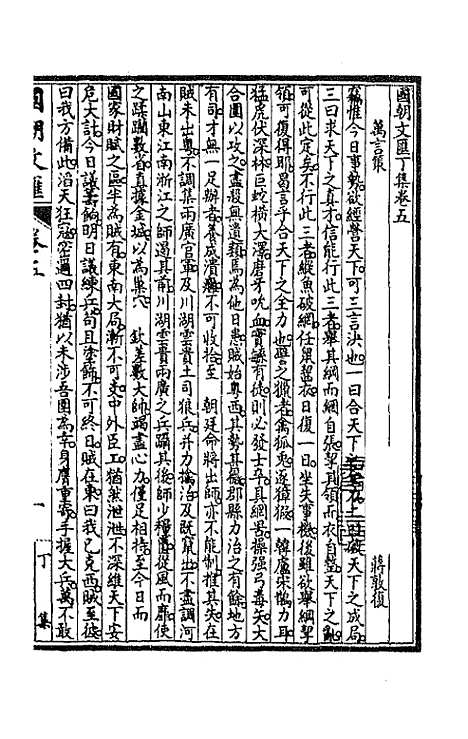 國朝文匯丁集卷五
萬言策 蔣敦復
竊惟今日事勢欲經營天下可三言決也一曰合天下
天下之成局
三曰求天下之真才信能行此三者舉其綱而網自張挈其領而衣自整天下之亂
可從此定矣不行此三者縱魚破網任鼠齧衣日復一日坐失事機後雖欲舉綱挈
領可復得耶曷言乎合天下之全力也譬之獵者禽狐兔逐獐猳一韓盧宋鵲力耳
猛虎伏深林巨蛇橫大澤磨牙吮血實繁有徒則必發士卒具網罟操強弓毒矢大
合圍以攻之盡殺無遺類焉為他日患賊始粵西其勢甚微郡縣力治之有餘地方
有司才無一足辦者養成潰癰不可收拾至 朝廷命將出師亦不能制推其失在
賊未出粵不調集兩廣官軍及川湖雲貴土司狼兵并力擒治及既竄出不盡調河
南山東江南浙江之師遏其前川湖雲貴兩廣之兵躡其後師少糧
從風而靡使
之蹂躪數省直據金城以為巢穴 欽差數大帥竭盡心力僅足相持至今日而
國家財賦之區半為賊有東南大局漸不可支中外臣工猶然泄泄不深維天下安
危大計今日議籌餉明日議練兵苟且塗飾不可終日賊在東曰我已克西賊至彼
曰我方備此滔天狂寇密邇四封猶以未涉吾圉為幸身膺重寄手握大兵萬不敢
國朝文匯 卷五 一 丁集